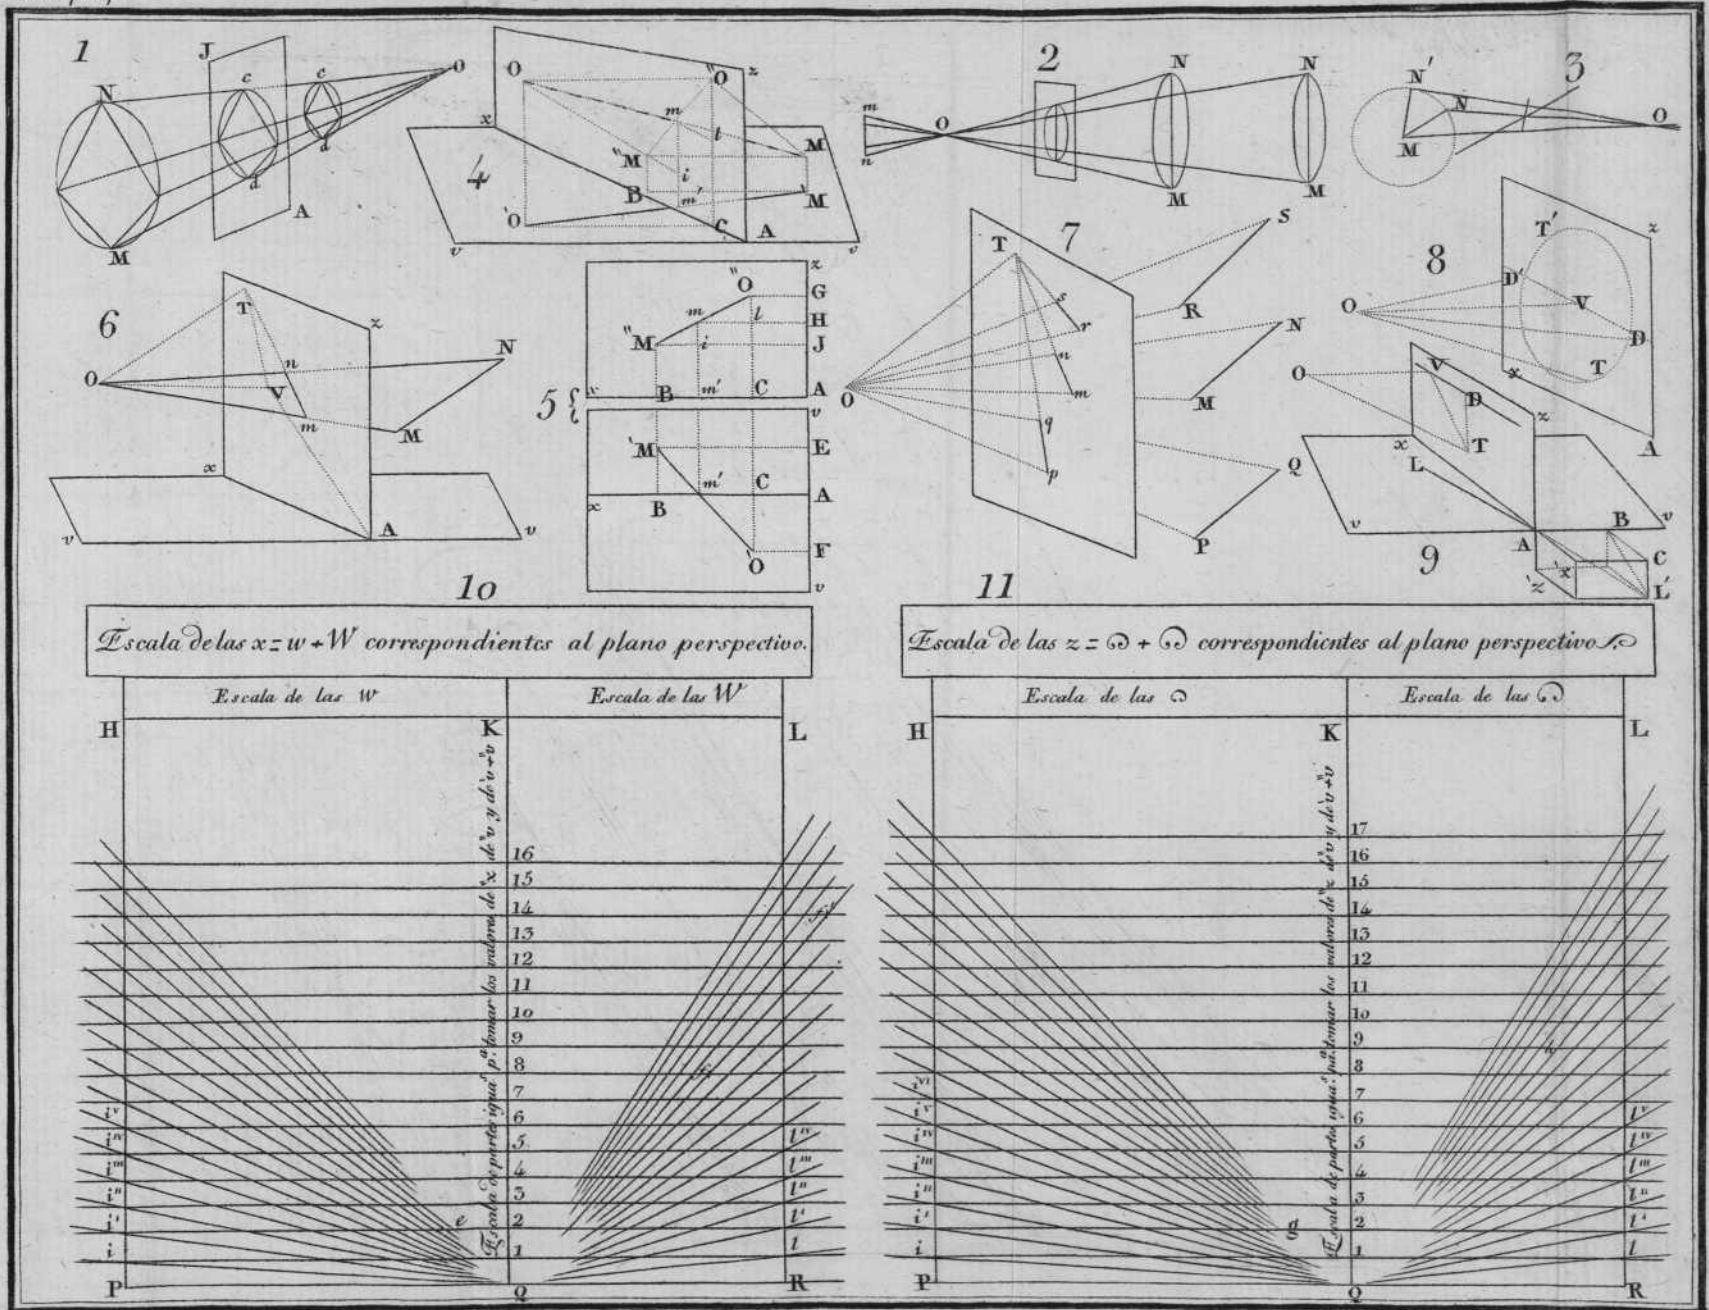 1
J
c
c
O
N
d
d
A
M
4
O
"O
z
x
m
l
M
"M
i
B
m'
M
'O
C
A
v
v
2
N
N
m
O
n
M
M
3
N'
N
O
M
6
T
z
n
N
O
V
m
M
x
A
v
v
5
z
"O
G
m
l
H
"M
i
J
x
B
m'
C
A
v
'M
E
m'
C
A
x
B
'O
F
v
7
S
T
s
R
r
N
n
O
m
M
q
Q
p
P
8
T'
z
D'
V
O
D
x
T
A
9
O
V
D
z
x
T
L
v
B
v
A
C
'x
'z
L'
10
Escala de las x = w + W correspondientes al plano perspectivo.
Escala de las w
Escala de las W
H
K
L
Escala de partes igua.s p.a tomar los valores de "x de "v y de 'v + "v
16
15
14
13
12
11
10
9
8
7
6
5
4
3
2
1
i^v
i^iv
i^m
i^n
i'
i
e
l^iv
l^m
l^n
l'
l
P
Q
R
11
Escala de las z = correspondientes al plano perspectivo.
Escala de las
Escala de las
H
K
L
Escala de partes igua.s p.a tomar los valores de "z de "v y de 'v + "v
17
16
15
14
13
12
11
10
9
8
7
6
5
4
3
2
1
i^vi
i^v
i^iv
i^m
i^n
i'
i
g
h
l^v
l^iv
l^m
l^n
l'
l
P
Q
R